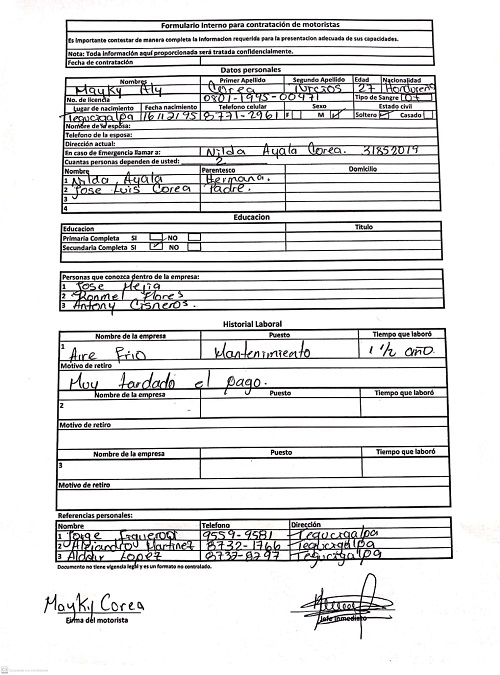 Formulario Interno para contratación de motoristas
Es importante contestar de manera completa la informacion requerida para la presentacion adecuada de sus capacidades.
Nota: Toda información aquí proporcionada será tratada confidencialmente.
Fecha de contratación
Datos personales
Nombres Primer Apellido Segundo Apellido Edad Nacionalidad
Mayky Aly Corea 27
No. de licencia 0801-1995-00471 Tipo de Sangre
Lugar de nacimiento Fecha nacimiento Telefono celular Sexo Estado civil
Tegucigalpa 16/12/95 8771-2961 F M Soltero Casado
Nombre de la esposa:
Telefono de la esposa:
Dirección actual:
En caso de Emergencia llamar a: Nilda Ayala Corea. 31852019
Cuantas personas dependen de usted: 2
Nombre Parentesco Domicilio
1 Nilda Ayala Hermana.
2 Jose Luis Corea Padre.
3
4
Educacion
Educacion Titulo
Primaria Completa SI NO
Secundaria Completa SI NO
Personas que conozca dentro de la empresa:
1 Jose Mejia
2 Ronmel Flores
3 Antony Cisneros.
Historial Laboral
Nombre de la empresa Puesto Tiempo que laboró
1 Aire Frio Mantenimiento 1 1/2 año.
Motivo de retiro
Muy tardado el pago.
Nombre de la empresa Puesto Tiempo que laboró
2
Motivo de retiro
Nombre de la empresa Puesto Tiempo que laboró
3
Motivo de retiro
Referencias personales:
Nombre Telefono Dirección
1 Jorge Figueroa 9559-9581 Tegucigalpa
2 Alejandro Martinez 8732-1766 Tegucigalpa
3 Aldair Lopez 8732-8297 Tegucigalpa
Documento no tiene vigencia legal y es un formato no controlado.
Mayky Corea
Firma del motorista Jefe inmediato